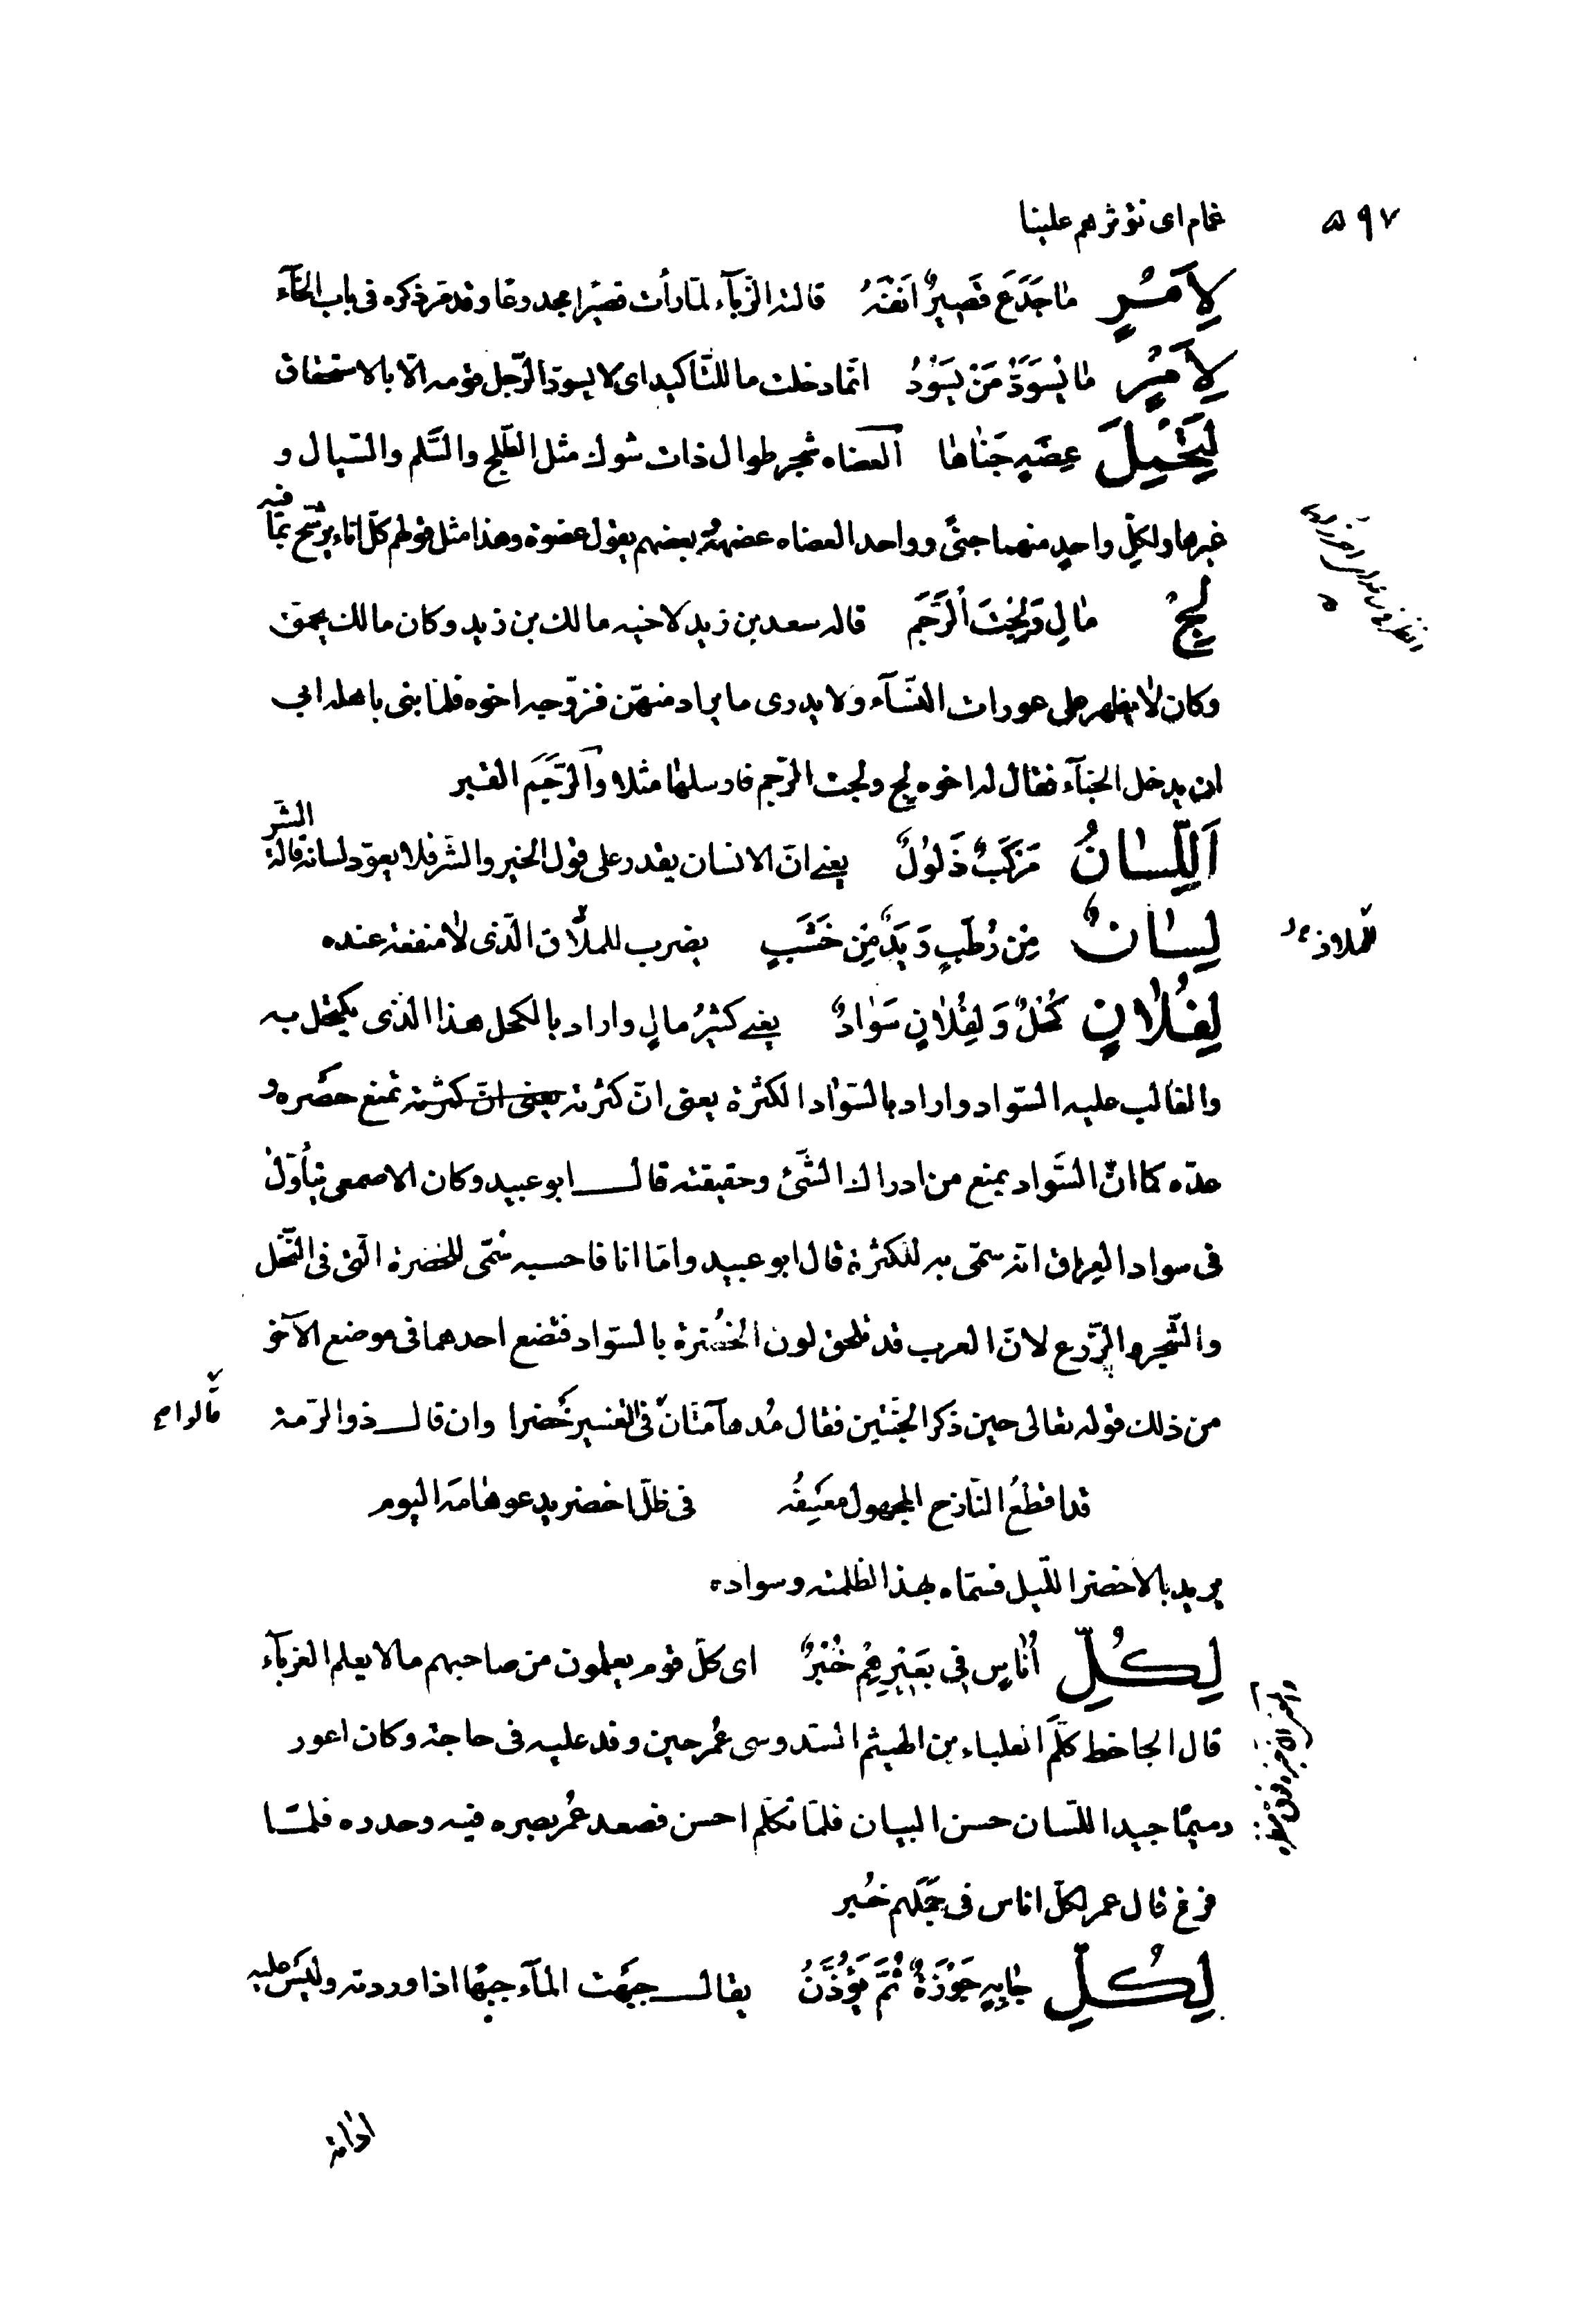 ٥٩٧
غمام اى نؤثرهم علينا
لِاَمْرٍ مٰا جَدَعَ قَصِيرٌ اَنْفَهُ قالته الزّبآء لمّا رأت قصيرا مجدوعا وقد مرّ ذكره فى باب الخآء
لِاَمْرٍ مٰا يُسَوَّدُ مَنْ يَسُوْدُ انّما دخلت ما للتّاكيد اى لا يسود الرّجل قومه الّا بالاستحقاق
لِيَحْمِلَ عِضَهٍ جَنٰاهٰا العضاه شجر طوال ذات شوك مثل الطّلح والسَّلم والسّيال و
غيرها ولكلّ واحدٍ منهما جنىً وواحد العضاه عضهة بعضهم يقول عضوة وهذا مثل قولهم كلّ اناء يرشّح بمٰا فيه
لِجْ مٰالِ وَلَجْتَ الرَّجَمَ قاله سعد بن زيد لاخيه مالك بن زيد وكان مالك يحمق
وكان لا يظهر على عورات النّسآء ولا يدرى ما يراد منهنّ فزوّجه اخوه فلمّا بنى باهله ابى
ان يدخل الخبآء فقال له اخوه لج ولجت الرّجم فارسلها مثلا والرَّجَم القبر
اَللِّسٰانُ مَرْكَبٌ ذَلُولٌ يعنى انّ الانسان يقدر على قول الخير والشّر فلا يعوّد لسانه قالة الشّر
لِسٰانٌ مِنْ رُطَبٍ وَيَدٌ مِنْ خَشَبٍ يضرب للملّاق الّذى لا منفعة عنده
للملاذ
لِفُلٰانٍ كُحْلٌ وَلِفُلٰانٍ سَوٰادٌ يعنى كثيرُ مالٍ واراد بالكحل هذا الّذى يكتحل به
والغالب عليه السّواد واراد بالسّواد الكثرة يعنى انّ كثرته يعنى انّ كثرته تمنع حصره و
عدّه كما انّ السَّواد يمنع من ادراك الشَّئ وحقيقته قال ابو عبيد وكان الاصمعى يتأوّل
فى سواد العراق انّه سمّى به للكثرة قال ابو عبيد وامّا انا فاحسبه سُمّى للخضرة الّتى فى النّخل
والشّجر والزّرع لانّ العرب قد تلحق لون الخُضرة بالسّواد فتضع احدهما فى موضع الآخر
من ذلك قوله تعالى حين ذكر الجنّتين فقال مُدهآمّتانْ فى التّفسير خَضرا وان قال ذو الرّمة
قد اقطعُ النّازح المجهول معسفُه فى ظلّ اخضر يدعو هٰامه اليوم
يريد بالاخضر اللّيل فسمّاه بهذا لظلمته وسواده
لِكُلِّ اُنٰاسٍ فِى بَعِيْرِهِمْ خُبْرٌ اى كلّ قوم يعلمون من صاحبهم ما لا يعلم الغربآء
قال الجاحظ كلّمَ العلباء بن الهيثم السّدوسى عُمر حين وفد عليه فى حاجة وكان اعور
دميمًا جيد اللّسان حسن البيان فلمّا تكلّم احسن فصعد عُمر بصره فيه وحدده فلمّا
فرغ قال عمر لكلّ اناس فى جَمَلهم خُبر
لِكُلِّ جٰابِهٍ جَوْزَةٌ ثُمَّ يُؤَذَّنُ يقال جبهت المآء جبهًا اذا وردته وليس عليه
اداة